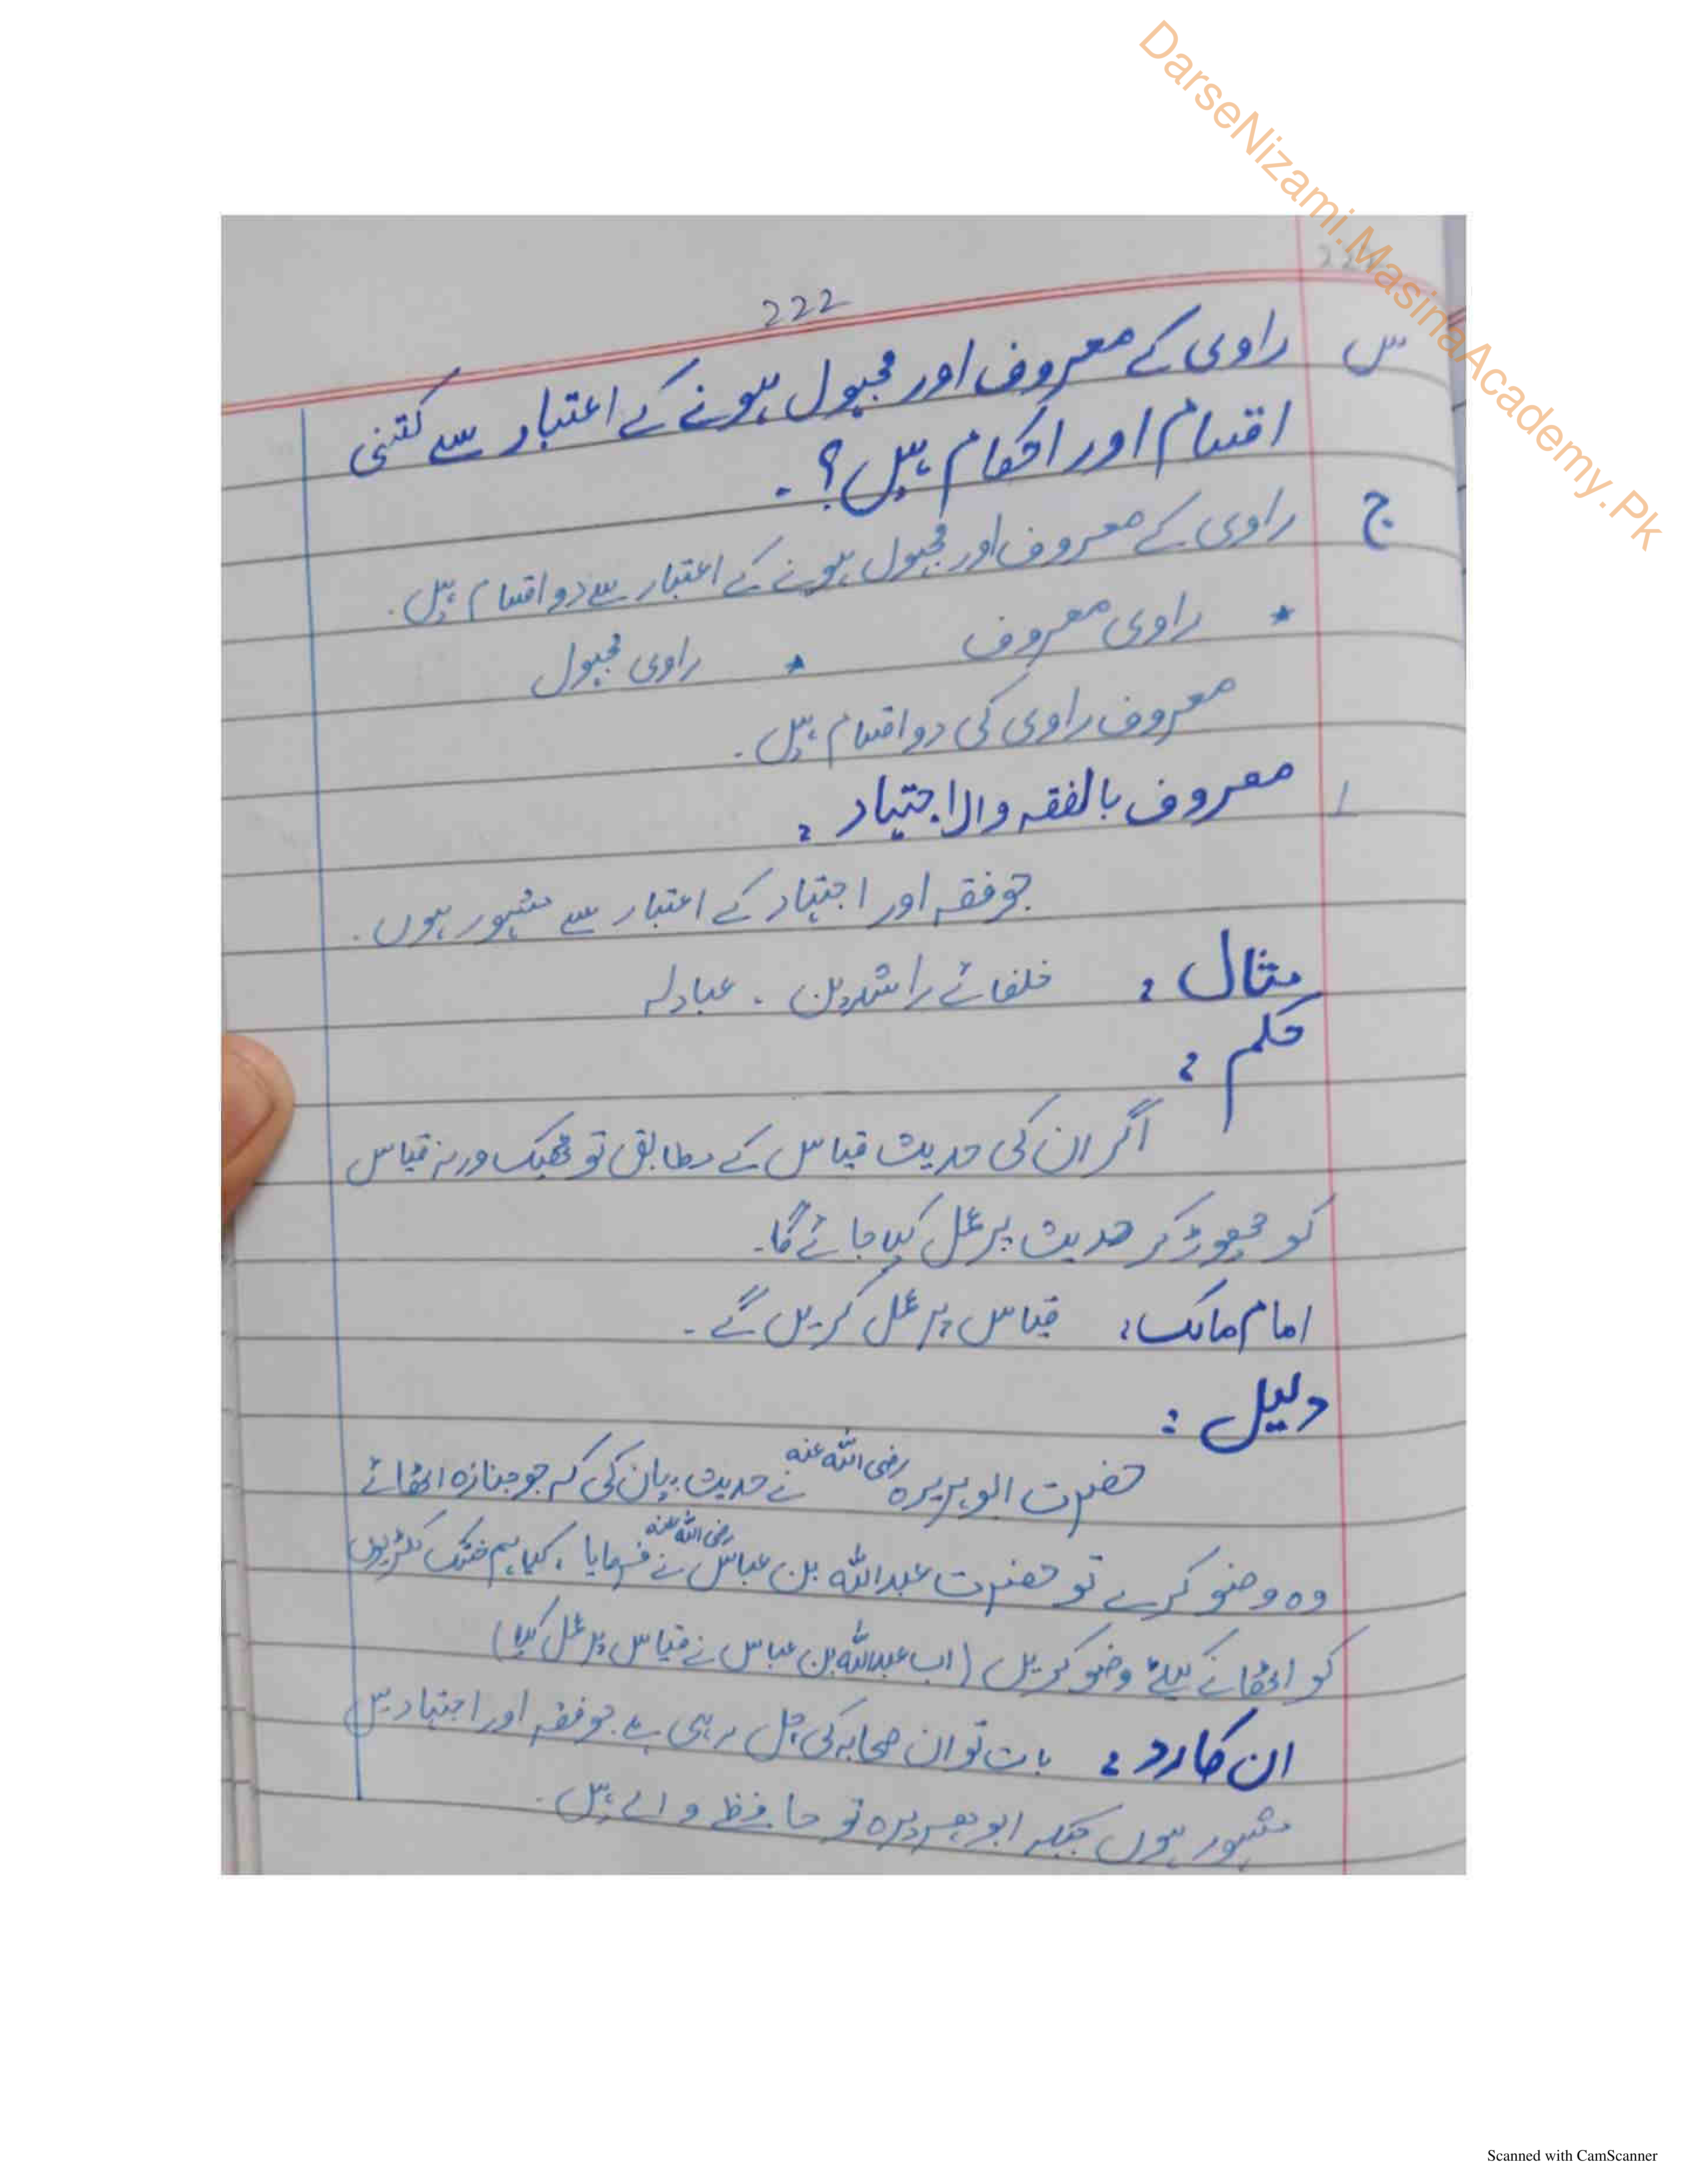 DarseNizami.MasinaAcademy.Pk
222
س راوی کے معروف اور مجہول ہونے کے اعتبار سے کتنی
اقسام اور احکام ہیں؟۔
ج راوی کے معروف اور مجہول ہونے کے اعتبار سے دو اقسام ہیں۔
* راوی معروف * راوی مجہول
معروف راوی کی دو اقسام ہیں۔
1 معروف بالفقہ والاجتہاد :
جو فقہ اور اجتہاد کے اعتبار سے مشہور ہوں۔
مثال : خلفائے راشدین ۔ عبادلہ
حکم :
اگر ان کی حدیث قیاس کے مطابق تو ٹھیک ورنہ قیاس
کو چھوڑ کر حدیث پر عمل کیا جائے گا۔
امام مالک : قیاس پر عمل کریں گے۔
دلیل :
حضرت ابو ہریرہ رضی اللہ عنہ نے حدیث بیان کی کہ جو جنازہ اٹھائے
وہ وضو کرے تو حضرت عبداللہ بن عباس رضی اللہ عنہ نے فرمایا ، کیا ہم خشک لکڑیوں
کو اٹھانے کیلئے وضو کریں (اب عبداللہ بن عباس نے قیاس پر عمل کیا)
ان کا رد : بات تو ان صحابہ کی چل رہی ہے جو فقہ اور اجتہاد میں
مشہور ہوں جبکہ ابو ہریرہ تو حافظے والے ہیں۔
Scanned with CamScanner